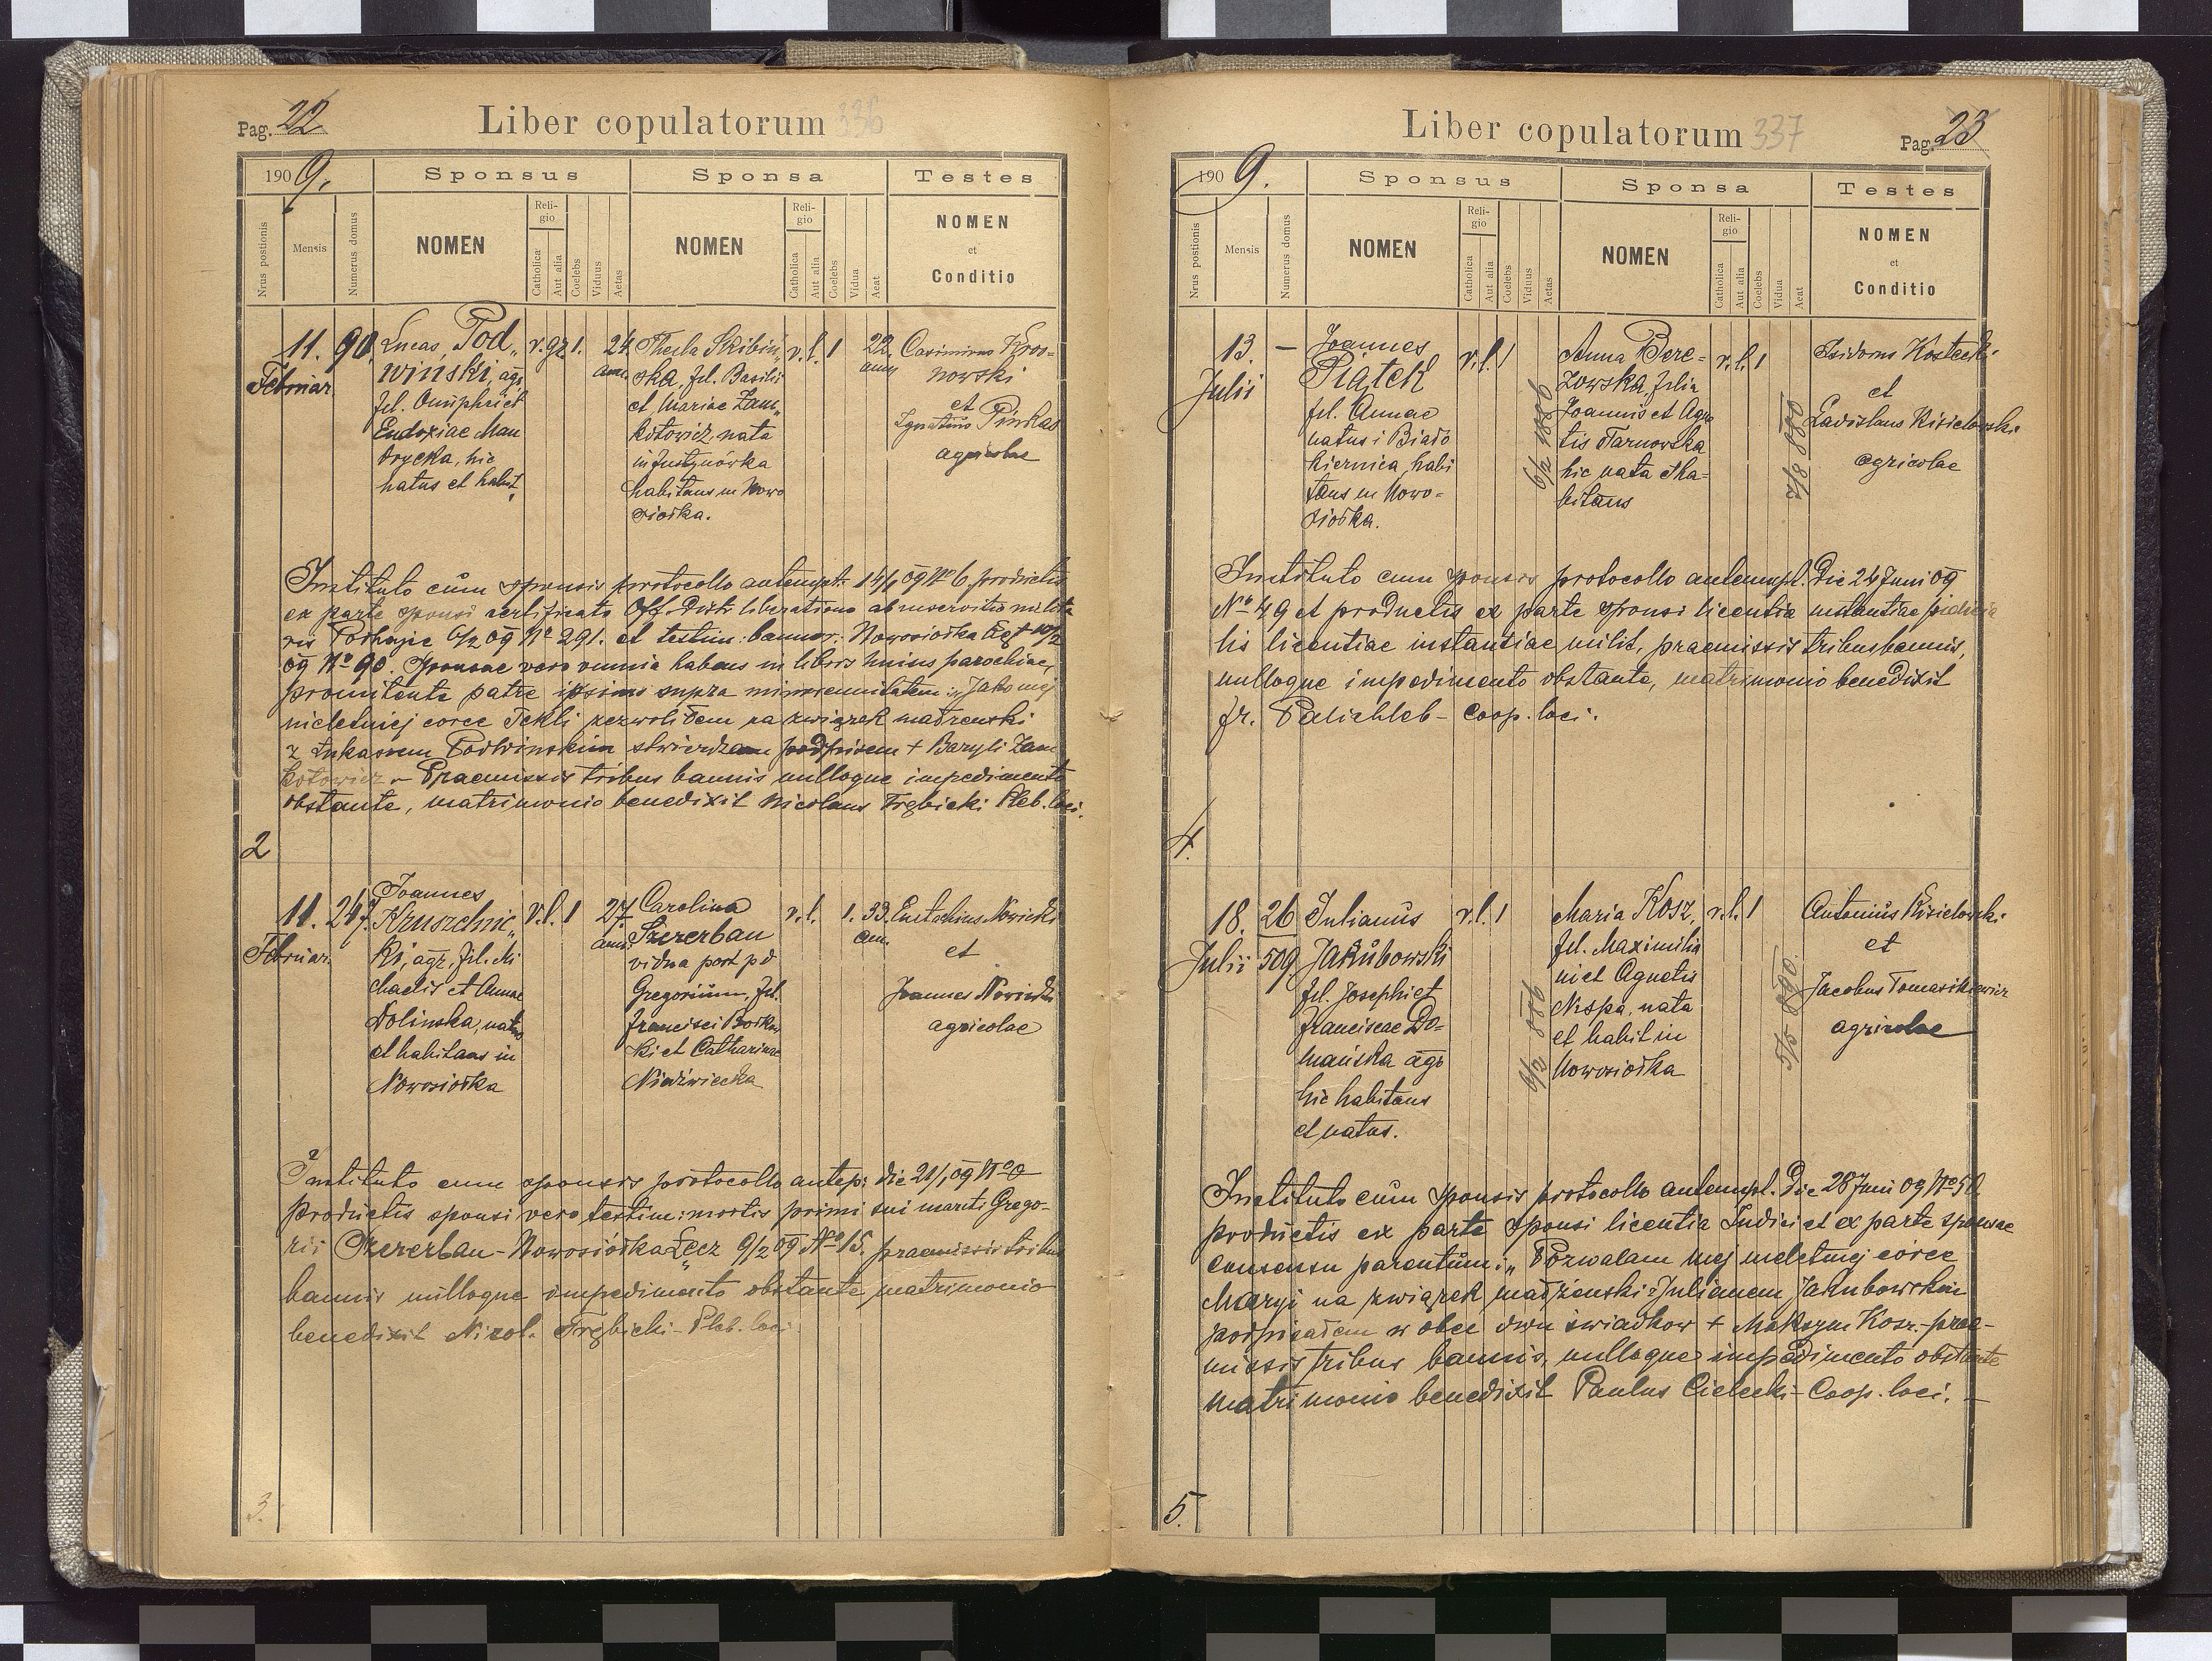 Pag. 22
Liber copulatorum 336
1909.
Sponsus
Sponsa
Testes
Nrus postionis
Mensis
Numerus domus
NOMEN
Religio
Catholica
Aut alia
Coelebs
Viduus
Aetas
NOMEN
Religio
Catholica
Aut alia
Coelebs
Vidua
Aeat
NOMEN
et
Conditio
11.
Februar.
90.
Lucas Pod„
winski, agr.
fil. Onuphri et
Eudoxiae Man
drycka, hic
natus et habit.
1.
24
ann.
Thecla Skibiń„
ska, fil. Basilii
et Mariae Zam„
kotowicz, nata
in Justynówka
habitans in Nowo
siołka.
r. l. 1
22
ann.
Casimirus Kros=
nowski
et
Ignatius Pinkas
agricolae
Instituto cum sponsis protocollo antenupt. 14/1 09 No 6 productis
ex parte sponsi certificato Off. Distr. liberationis ab inservitio milita
ris Podhajce 6/2 09 No 291. et testim: bannor: Nowosiołka
09 No 90. Sponsae vero omnia habens in libris huius parochiae,
promitente patre ipsius supra minorennitatem: „Ja mej
nieletniej corce Tekli zezwoliłem na związek małżenski
z Łukaszem Podwinskim stwierdzam podpisem + Bazyli Zam
kotowicz - Praemissis tribus bannis nulloque impedimento
obstante, matrimonio benedixit Nicolaus Trębicki Pleb. loci.
2
11.
Februar.
247.
Joannes
Kruszelnic„
ki, agr. fil. Mi
chaelis et Annae
Dolinska, natus
et habitans in
Nowosiołka
r. l. 1
27
ann.
Carolina
Szczerbau
vidua post pd
Gregorium, fil.
Francisci Boikow
ski et Catharinae
Niedzwiecka
r. l.
1. 33
ann.
Eustachius Nowicki
et
Joannes Nowicki
agricolae
Instituto cum sponsis protocollo antep: die 21/1 09 No 0
productis sponsi vero testim: mortis primi sui mariti Grego-
rii Szczerbau - Nowosiółka 9/2 09 No 15. praemissis tribus
bannis nulloque impedimento obstante matrimonio
benedixit Nicol. Trębicki - Pleb. loci
3.
Liber copulatorum 337
Pag. 23
1909.
Sponsus
Sponsa
Testes
Nrus postionis
Mensis
Numerus domus
NOMEN
Religio
Catholica
Aut alia
Coelebs
Viduus
Aetas
NOMEN
Religio
Catholica
Aut alia
Coelebs
Vidua
Aeat
NOMEN
et
Conditio
13.
Julii
—
Joannes
Piątek
fil. Annae
natus i Biało
kiernica, habi
tans in Nowo=
siołka.
r. l. 1
6/2 1886
Anna Bere=
zowska, filia
Joannis et Agne
tis Tarnowska
hic nata et ha=
bitans
r. l. 1
7/8 880
Isidorus Kostecki
et
Ladislaus Kisielowski
agricolae
Instituto cum sponsis protocollo antenupt. Die 24 Juni 09
No 49 et productis ex parte sponsi licentia instantiae judicia
lis licentiae instantiae milit, praemissis tribus bannis,
nulloque impedimento obstante, matrimonio benedixit
fr. Palichleb - Coop. loci.
4.
18.
Julii
26
509
Julianus
Jakubowski
fil. Josephi et
Franciscae Do=
mańska agr
hic habitans
et natus.
r. l. 1
9/2 886
Maria Kosz,
fil. Maximilia
ni et Agnetis
Nispa, nata
et habit in
Nowosiołka
r. l. 1
5/5 890.
Antonius Kisielowski
et
Jacobus Tomasikiewicz
agricolae
Instituto cum sponsis protocollo antenupt. Die 28 Juni 09 No 50
productis ex parte sponsi licentia Judici et ex parte sponsae
consensu parentum: „Pozwalam mej nieletniej córce
Maryi na związek małżenski z Julianem Jakubowskim
podpisałem w obec dwu świadkow + Maksym Kosz. - prae-
missis tribus bannis, nulloque impedimento obstante
matrimonio benedixit Paulus Cielecki - Coop. loci. —
5.